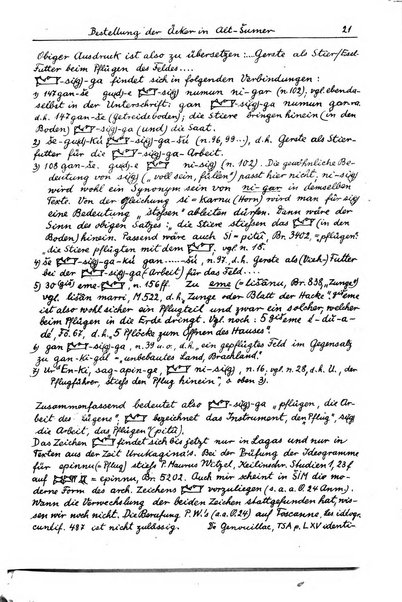 Bestellung der Äcker in Alt-Šumer 21
Obiger Ausdruck ist also zu übersetzen: „Gerste als Stier/Esel-
Futter beim Pflügen des Feldes....
-sig)-ga findet sich in folgenden Verbindungen:
1) 147 gan-še gud)-e numun ni-gar (n.102), vgl. ebenda-
selbst in der Unterschrift: gan -sig)-ga numun gar-ra
d.h. 147 gan-še (Getreideboden); die Stiere bringen hinein (in den
Boden) -sig)-ga (und) die Saat.
2) še-gud-kú -sig)-ga-šú (n.96, 99...), d.h. Gerste als Stier-
futter für die -sig)-ga-Arbeit.
3) 108 gan-še. gud)-e ni-sig) (n.102). Die gewöhnliche Be-
deutung von sig) („voll sein, füllen") passt hier nicht, ni-sig)
wird wohl ein Synonym sein von ni-gar in demselben
Texte. Von der Gleichung si = karnu (Horn) wird man für sig)
eine Bedeutung „stoßen" ableiten dürfen. Dann wäre der
Sinn des obigen Satzes: „die Stiere stießen das (in den
Boden) hinein. Passend wäre auch si = pitû, Br. 3402, „pflügen":
„die Stiere pflügten mit dem , vgl. n.15.
4) še -sig)-ga-kú gan .....-šú, n.97, d.h. Gerste als (Vieh-) Futter
bei der -sig)-ga (Arbeit) für das Feld....
5) 30 giš eme- , n.156 ff. Zu eme (= lišânu, Br. 838, „Zunge")
vgl. lišân marri, M.522, d.h. „Zunge oder Blatt der Hacke". giš eme
ist also wohl sicher ein Pflugteil und zwar ein solcher, welcher
beim Pflügen in die Erde dringt. Vgl. noch: 5 giš eme é-du-a-
dé, Fö. 65, d.h. „5 Pflöcke zum Öffnen des Hauses".
6) gan -sig)-ga, n.39 u.o., d.h., ein gepflügtes Feld im Gegensatz
zu gan-ki-gál „unbebautes Land, Brachland."
7) Ud En-ki, sag-apin-ge, ni-sig), n.16, vgl. n.28, d.h. U., der
Pflugführer, stieß den Pflug hinein", s. oben 3).
Zusammenfassend bedeutet also -sig)-ga „pflügen, die Ar-
beit des Pflügens". bezeichnet das Instrument, den Pflug", sig)
die Arbeit, das Pflügen (pitû).
Das Zeichen findet sich bis jetzt nur in Lagaš und nur in
Texten aus der Zeit Urukagina's. Bei der Prüfung der Ideogramme
für epinnu (= Pflug) stieß P. Maurus Witzel, Keilinschr. Studien 1, 23 f
auf = epinnu, Br. 5202. Auch mir scheint in ŠÍM die mo-
derne Form des arch. Zeichens vorzuliegen (s.a.a.O. 24 Anm.).
Wann die Verwechslung der beiden Zeichen stattgefunden hat, wis-
sen wir noch nicht. Die Berufung P.W.'s (a.a.O. 24) auf Toscanne, les idéogr.
cunéif. 487 ist nicht zulässig. De Genouillac, TSA p. LXV identi-